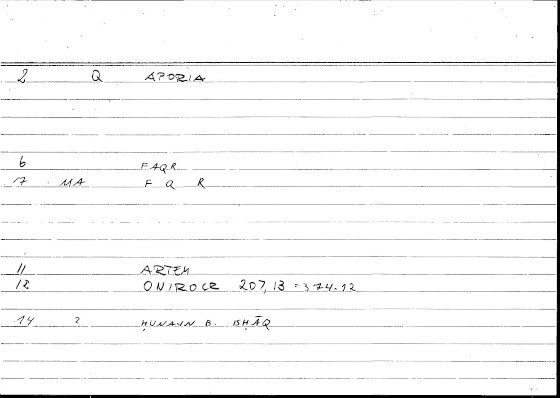 2 Q APORIA
6 FAQR
7 MA F Q R
11 ARTEM
12 ONIROCR 207,13 = 374.12
14 ? ḤUNAYN B. ISḤĀQ